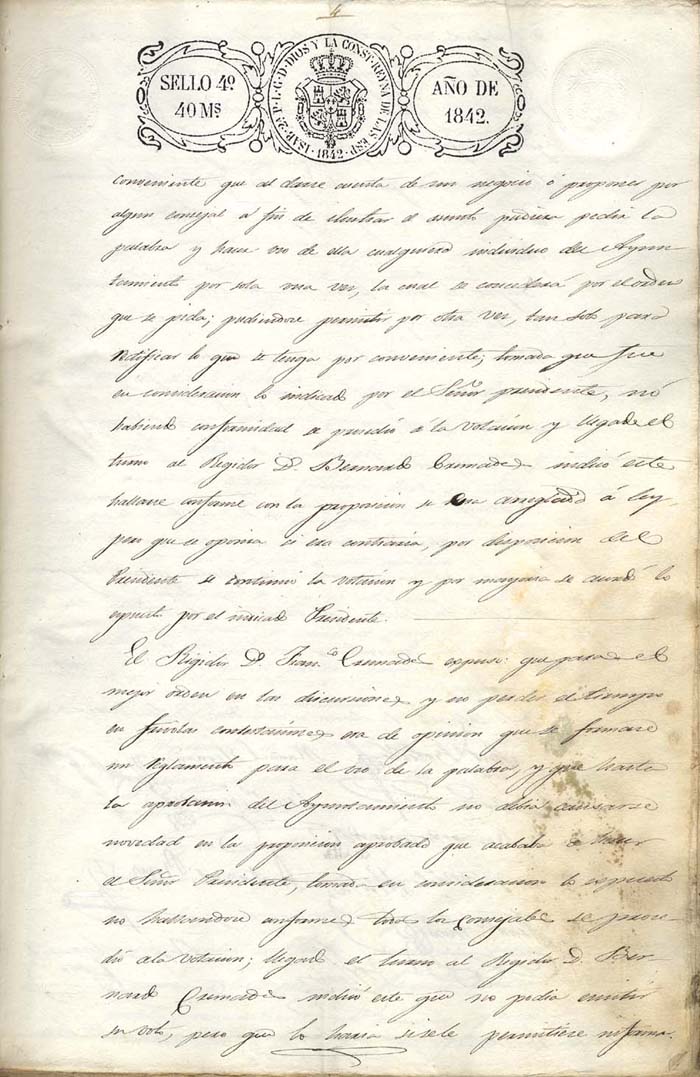 4
SELLO 4º
40 Ms
ISAB. 2ª P. L. G. D. DIOS Y LA CONST. REYNA DE LAS ESP.
1842
AÑO DE
1842.
conveniente que al darse cuenta de un negocio ó proponer por
algun consejal á fin de ilustrar el asunto pudiera pedir la
palabra y hacer uso de ella cualquiera individuo del Ayun-
tamiento por sola una vez, la cual se concederá por el orden
que se pida; pudiendose permitir por otra vez, tan solo para
rectificar lo que se tenga por conveniente; tomada que fue
en consideracion lo indicado por el Señor presidente, nó
habiendo conformidad se procedió á la votacion y llegado el
turno al Regidor D. Bernardo Cremades indicó este
hallarse conforme con la proposicion si era arreglada á ley,
pero que se oponia si era contraria, por disposicion del
Presidente se continuó la votacion y por mayoria se acordó lo
espuesto por el indicado Presidente.
El Regidor D. Franco Cremades espuso: que para el
mejor órden en las discusiones y no perder el tiempo
en contestaciones era de opinion que se formase
un reglamento para el uso de la palabra, y que hasta
la aprobacion del Ayuntamiento no debia causarse
novedad en la proposicion aprobada que acababa de hacer
el Señor Presidente, tomada en consideracion lo espuesto
no hallandose conformes todos los Consejales se proce-
dió a la votacion; llegado el turno al Regidor D. Ber-
nardo Cremades indicó este que no podia emitir
su voto, pero que lo haria si se le permitiese informar.